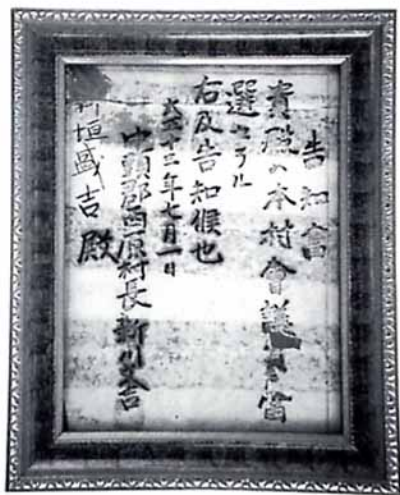 告知書
貴殿ハ本村會議員當
選セラル
右及告知候也
大正十三年七月一日
中頭郡西原村長新川
新垣盛吉殿